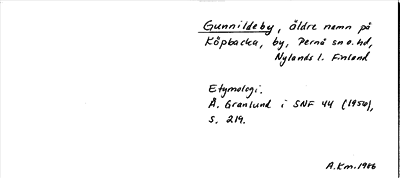 Gunnildeby, äldre namn på
Köpbacka, by, Pernå sn o. hd,
Nylands l. Finland
Etymologi.
Å. Granlund i SNF 44 (1956),
s. 219.
A.Km. 1986